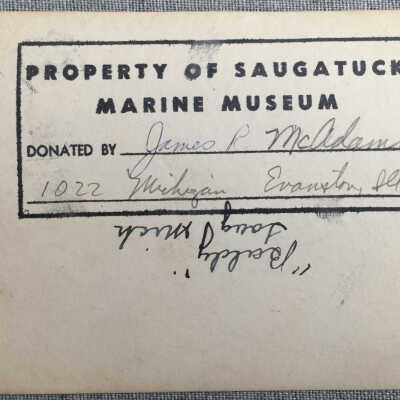 PROPERTY OF SAUGATUCK
MARINE MUSEUM
DONATED BY James R McAdams
1022 Michigan Evanston, Ill
"Baldy"
Saug Mich